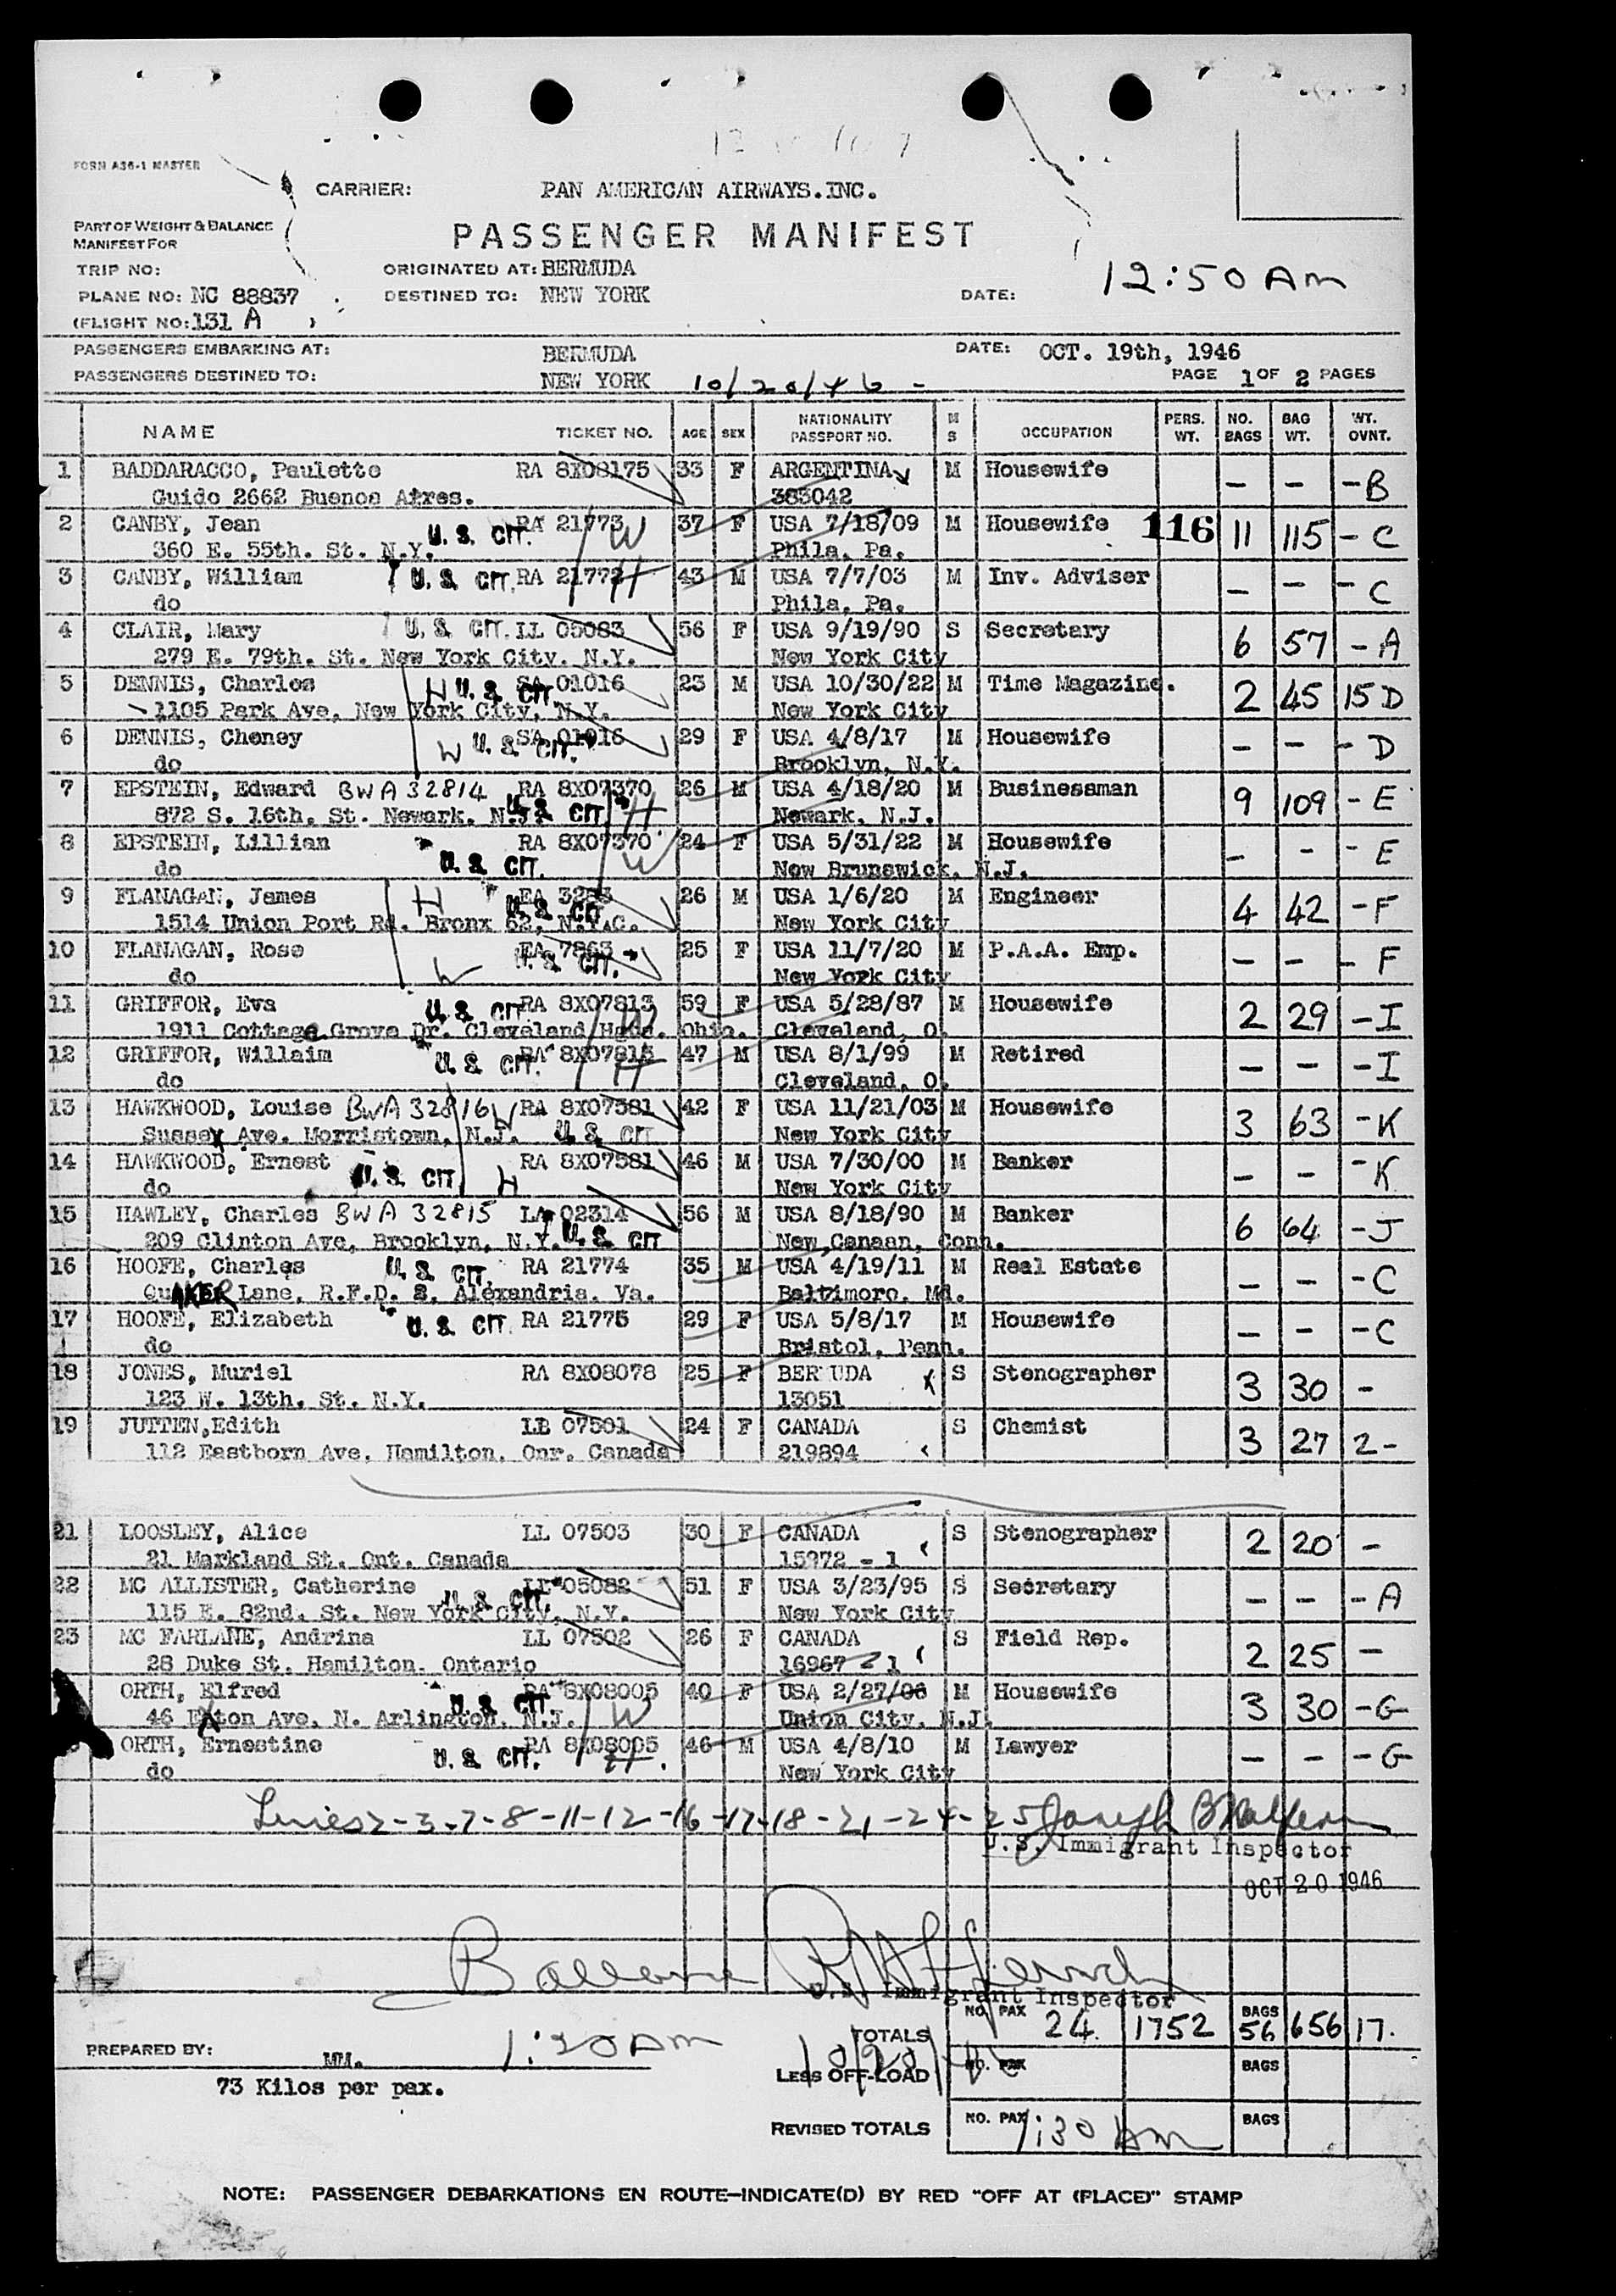 FORM A36-1 MASTER
CARRIER: PAN AMERICAN AIRWAYS.INC.
PART OF WEIGHT & BALANCE
MANIFEST FOR
PASSENGER MANIFEST
TRIP NO: ORIGINATED AT: BERMUDA 12:50 Am
PLANE NO: NC 88837 DESTINED TO: NEW YORK DATE:
(FLIGHT NO: 131 A )
PASSENGERS EMBARKING AT: BERMUDA DATE: OCT. 19th, 1946
PASSENGERS DESTINED TO: NEW YORK 10/20/46 - PAGE 1 OF 2 PAGES
NAME TICKET NO. AGE SEX NATIONALITY PASSPORT NO. M S OCCUPATION PERS. WT. NO. BAGS BAG WT. WT. OVNT.
1 BADDARACCO, Paulette RA 8X08175 33 F ARGENTINA M Housewife - - - B
Guido 2662 Buenos Aires. 383042
2 CANBY, Jean U. S. CIT. RA 21773 W 37 F USA 7/18/09 M Housewife 116 11 115 - C
360 E. 55th. St. N.Y. Phila. Pa.
3 CANBY, William U. S. CIT. RA 21772 H 43 M USA 7/7/03 M Inv. Adviser - - - C
do Phila. Pa.
4 CLAIR, Mary U. S. CIT. LL 05083 56 F USA 9/19/90 S Secretary 6 57 - A
279 E. 79th. St. New York City. N.Y. New York City
5 DENNIS, Charles H U. S. CIT. SA 01016 23 M USA 10/30/22 M Time Magazine. 2 45 15 D
1105 Park Ave, New York City, N.Y. New York City
6 DENNIS, Cheney W U. S. CIT. SA 01016 29 F USA 4/8/17 M Housewife - - - D
do Brooklyn, N.Y.
7 EPSTEIN, Edward BWA 32814 RA 8X07370 26 M USA 4/18/20 M Businessman 9 109 - E
872 S. 16th. St. Newark. N.J. U. S. CIT. H Newark. N.J.
8 EPSTEIN, Lillian RA 8X07370 24 F USA 5/31/22 M Housewife - - - E
do U. S. CIT. W New Brunswick. N.J.
9 FLANAGAN, James H EA 3283 U. S. CIT 26 M USA 1/6/20 M Engineer 4 42 - F
1514 Union Port Rd. Bronx 62, N.Y.C. New York City
10 FLANAGAN, Rose W EA 7863 U. S. CIT. 25 F USA 11/7/20 M P.A.A. Emp. - - - F
do New York City
11 GRIFFOR, Eva U. S. CIT RA 8X07813 W 59 F USA 5/28/87 M Housewife 2 29 - I
1911 Cottage Grove Dr. Cleveland Hgds. Ohio. Cleveland, O.
12 GRIFFOR, Willaim U. S. CIT. RA 8X07813 H 47 M USA 8/1/99 M Retired - - - I
do Cleveland, O.
13 HAWKWOOD, Louise BWA 32816 W RA 8X07581 42 F USA 11/21/03 M Housewife 3 63 - K
Sussex Ave. Morristown, N.J. U. S. CIT New York City
14 HAWKWOOD, Ernest U. S. CIT. H RA 8X07581 46 M USA 7/30/00 M Banker - - - K
do New York City
15 HAWLEY, Charles BWA 32815 LA 02314 56 M USA 8/18/90 M Banker 6 64 - J
209 Clinton Ave, Brooklyn, N.Y. U. S. CIT New Canaan, Conn.
16 HOOFE, Charles U. S. CIT. RA 21774 35 M USA 4/19/11 M Real Estate - - - C
QuAKER Lane, R.F.D. 2, Alexandria. Va. Baltimore, Md.
17 HOOFE, Elizabeth U. S. CIT. RA 21775 29 F USA 5/8/17 M Housewife - - - C
do Bristol, Penn.
18 JONES, Muriel RA 8X08078 25 F BERMUDA S Stenographer 3 30 -
123 W. 13th. St. N.Y. 13051
19 JUTTEN,Edith LL 07501 24 F CANADA S Chemist 3 27 2-
112 Eastborn Ave. Hamilton. Onr. Canada 219894
21 LOOSLEY, Alice LL 07503 30 F CANADA S Stenographer 2 20 -
21 Markland St. Ont. Canada 15972 - 1
22 MC ALLISTER, Catherine U. S. CIT. LL 05082 51 F USA 3/23/95 S Secretary - - - A
115 E. 82nd. St. New York City, N.Y. New York City
23 MC FARLANE, Andrina LL 07502 26 F CANADA S Field Rep. 2 25 -
28 Duke St. Hamilton. Ontario 16967 - 1
ORTH, Elfred U. S. CIT RA 8X08005 W 40 F USA 2/27/06 M Housewife 3 30 - G
46 Eaton Ave. N. Arlington. N.J. Union City. N.J.
ORTH, Ernestine U. S. CIT. RA 8X08005 H. 46 M USA 4/8/10 M Lawyer - - - G
do New York City
Lines 2-3-7-8-11-12-16-17-18-21-24-25 Joseph B
U.S. Immigrant Inspector
OCT 20 1946
U.S. Immigrant Inspector
TOTALS NO. PAX 24. 1752 BAGS 56 656 17.
PREPARED BY: MM. 1:20 am 10/20/46
73 Kilos per pax. LESS OFF-LOAD NO. PAX BAGS
REVISED TOTALS NO. PAX 1:30 am BAGS
NOTE: PASSENGER DEBARKATIONS EN ROUTE—INDICATE(D) BY RED "OFF AT (PLACE)" STAMP